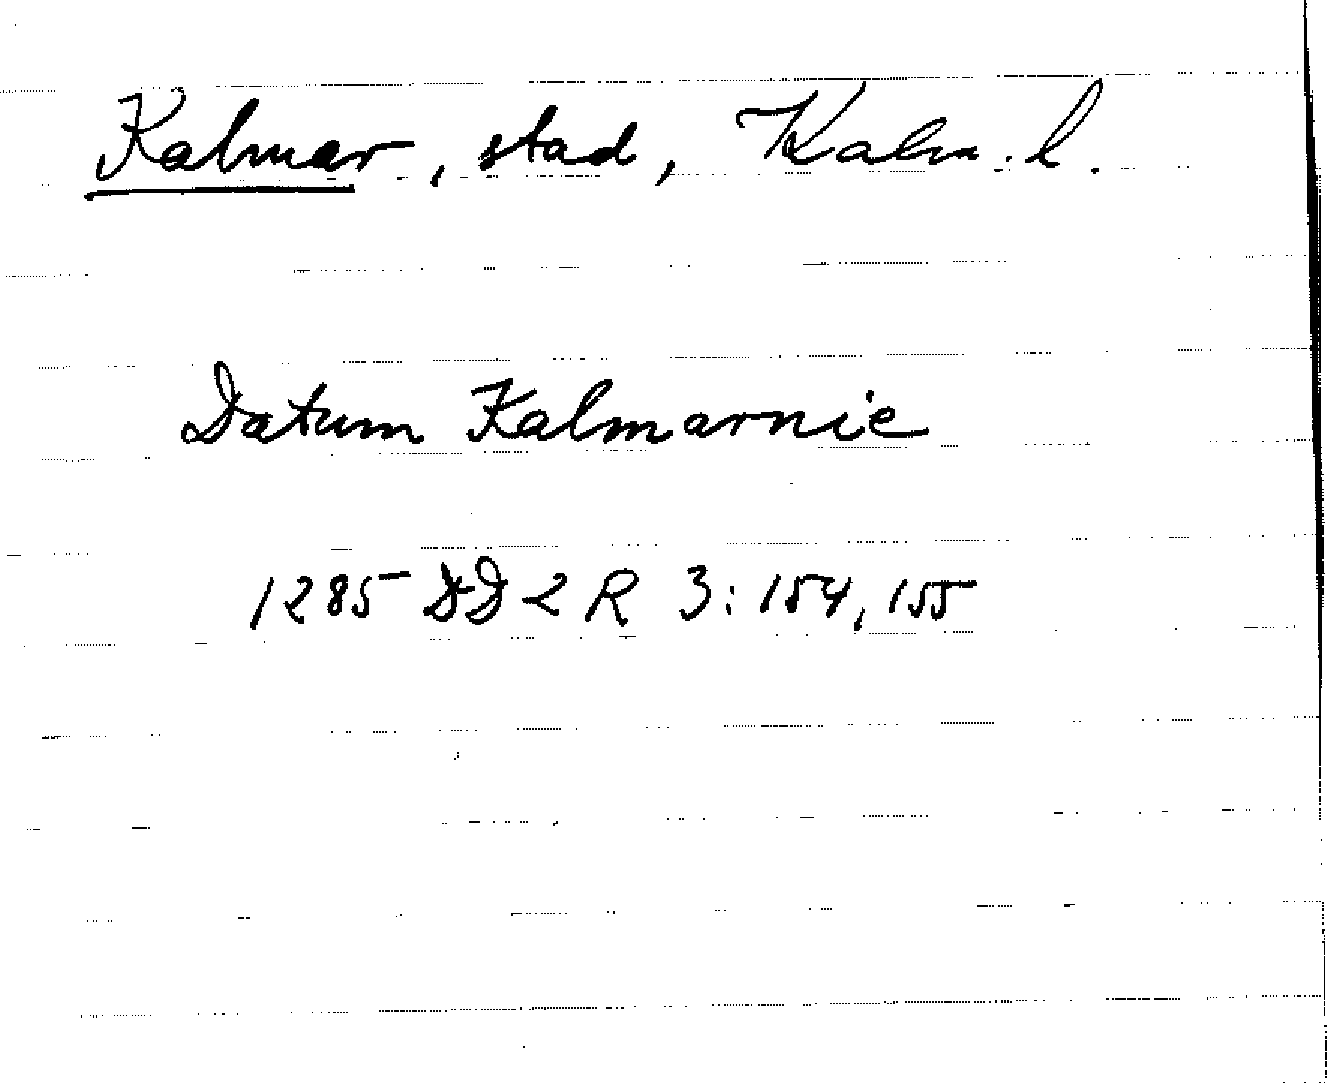 Kalmar, stad, Kalm. l.
Datum Kalmarnie
1285 DD 2 R 3: 154, 155